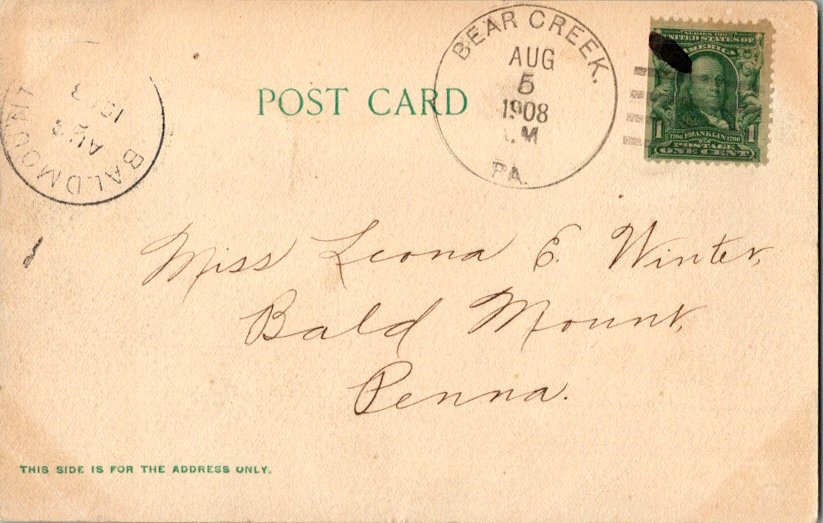 BEAR CREEK.
AUG
5
1908
M
PA.
SERIES 1902
UNITED STATES OF
AMERICA
1 1706 FRANKLIN 1790 1
POSTAGE
ONE CENT
POST CARD
BALDMOUNT
AUG
Miss Leona E. Winter,
Bald Mount,
Penna.
THIS SIDE IS FOR THE ADDRESS ONLY.